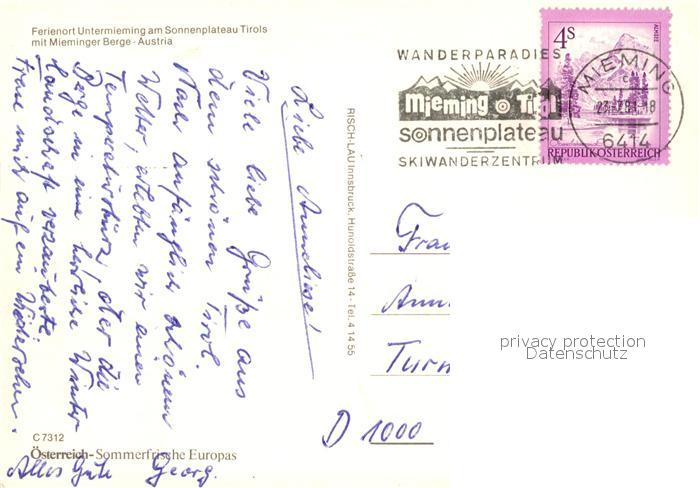 Ferienort Untermieming am Sonnenplateau Tirols
mit Mieminger Berge - Austria
Liebe Anneliese!
Viele liebe Grüße aus
dem schönen Tirol.
Nach anfänglich schönem
Wetter, erlebten wir einen
Temperatursturz, der die
Berge in eine herrliche Winter
Landschaft verzauberte.
Freue mich auf ein Wiedersehn.
Alles Gute Georg.
C 7312
Österreich-Sommerfrische Europas
RISCH-LAU Innsbruck, Hunoldstraße 14 - Tel. 4 14 55
WANDERPARADIES
mieming
sonnenplateau
SKIWANDERZENTRUM
4S
ALMSEE
REPUBLIK ÖSTERREICH
MIEMING
c
6414
Frau
Ann
Turn
D 1000
privacy protection
Datenschutz